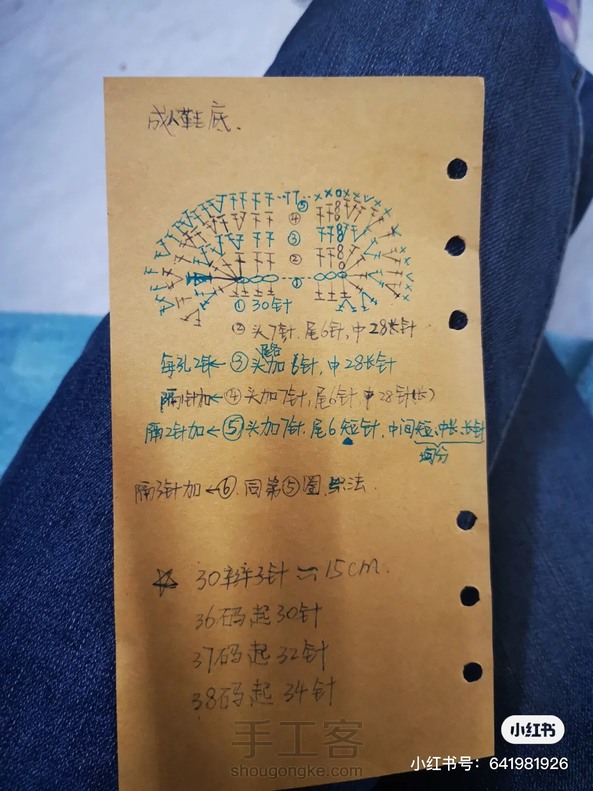 成人鞋底.
⑤
④
③
②
①
① 30针
② 头7针.尾6针,中28长针
每孔2针←③头加 针,中28长针
隔1针加←④头加7针,尾6针,中28针(长)
隔2针加←⑤头加7针.尾6短针,中间短.中长.长针
均分
隔3针加←⑥.同第⑤圈 法.
☆ 30辫子针≈15cm.
36码起30针
37码起32针
38码起34针
手工客
shougongke.com
小红书
小红书号:641981926